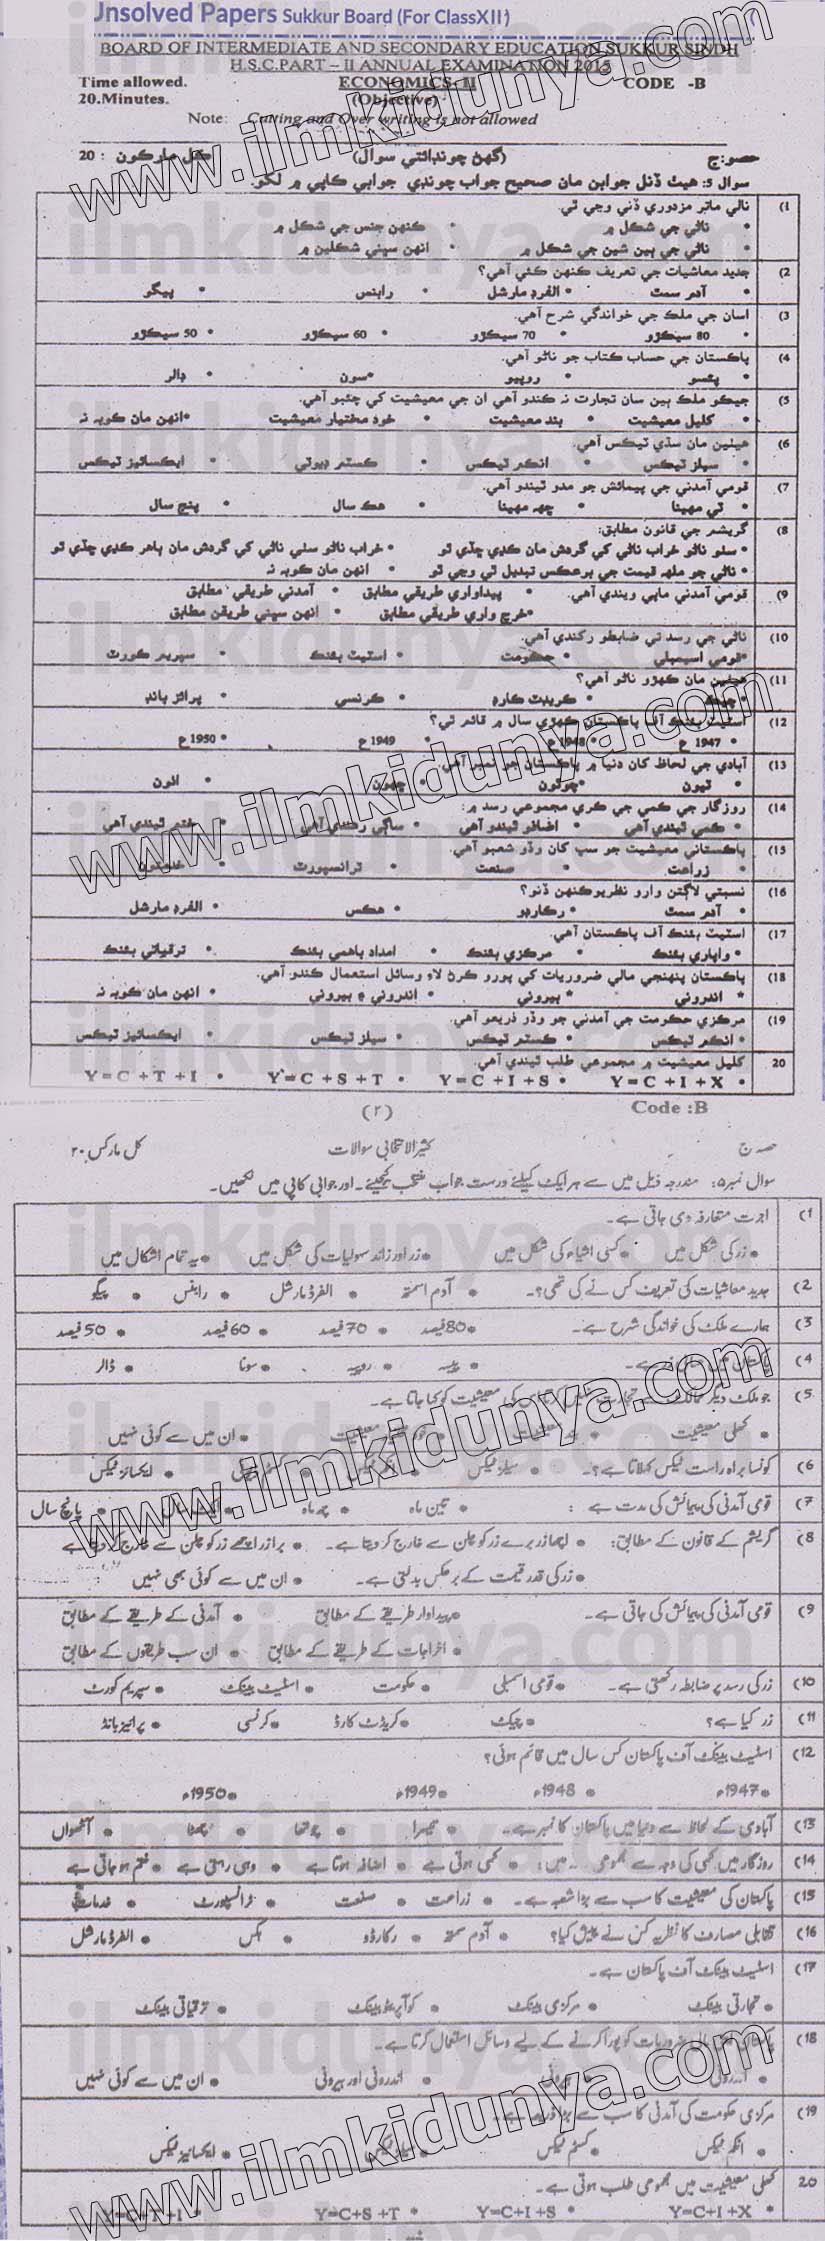 Unsolved Papers Sukkur Board (For ClassXII)
BOARD OF INTERMEDIATE AND SECONDARY EDUCATION SUKKUR SINDH
H.S.C.PART – II ANNUAL EXAMINATION 2015
Time allowed. ECONOMICS- II CODE -B
20.Minutes. (Objective)
Note: Cutting and Over writing is not allowed
حصو:ج (گهڻ چونڊائتي سوال) ڪل مارڪون : 20
سوال 5: هيٺ ڏنل جوابن مان صحيح جواب چونڊي جوابي ڪاپي ۾ لکو.
(1 نالي ماتر مزدوري ڏني وڃي ٿي.
• ناڻي جي شڪل ۾ • ڪنهن جنس جي شڪل ۾
• ناڻي جي ٻين شين جي شڪل ۾ • انهن سڀني شڪلين ۾
(2 جديد معاشيات جي تعريف ڪنهن ڪئي آهي؟
• آدم سمٿ • الفرڊ مارشل • رابنس • پيگو
(3 اسان جي ملڪ جي خواندگي شرح آهي.
• 80 سيڪڙو • 70 سيڪڙو • 60 سيڪڙو • 50 سيڪڙو
(4 پاڪستان جي حساب ڪتاب جو ناڻو آهي.
• پئسو • روپيو • سون • ڊالر
(5 جيڪو ملڪ ٻين سان تجارت نہ ڪندو آهي ان جي معيشيت کي چئبو آهي.
• کليل معيشيت • بند معيشيت • خود مختيار معيشيت • انهن مان ڪوبہ نہ
(6 هيٺين مان سڌي ٽيڪس آهي.
• سيلز ٽيڪس • انڪم ٽيڪس • ڪسٽم ڊيوٽي • ايڪسائيز ٽيڪس
(7 قومي آمدني جي پيمائش جو مدو ٿيندو آهي.
• ٽي مهينا • ڇهہ مهينا • هڪ سال • پنج سال
(8 گريشم جي قانون مطابق:
• سٺو ناڻو خراب ناڻي کي گردش مان ڪڍي ڇڏي ٿو • خراب ناڻو سٺي ناڻي کي گردش مان ٻاهر ڪڍي ڇڏي ٿو
• ناڻي جو ملهہ قيمت جي برعڪس تبديل ٿي وڃي ٿو • انهن مان ڪوبہ نہ
(9 قومي آمدني ماپي ويندي آهي. • پيداواري طريقي مطابق • آمدني طريقي مطابق
• خرچ واري طريقي مطابق • انهن سڀني طريقن مطابق
(10 ناڻي جي رسد تي ضابطو رکندي آهي.
• قومي اسيمبلي • حڪومت • اسٽيٽ بئنڪ • سپريم ڪورٽ
(11 هيٺين مان ڪهڙو ناڻو آهي؟
• چيڪ • ڪريڊٽ ڪارڊ • ڪرنسي • پرائز بانڊ
(12 اسٽيٽ بئنڪ آف پاڪستان ڪهڙي سال ۾ قائم ٿي؟
• 1947 ع • 1948 ع • 1949 ع • 1950 ع
(13 آبادي جي لحاظ کان دنيا ۾ پاڪستان جو نمبر آهي.
• ٽيون • چوٿون • ڇهون • اٺون
(14 روزگار جي ڪمي جي ڪري مجموعي رسد ۾:
• ڪمي ٿيندي آهي • اضافو ٿيندو آهي • ساڳي رهندي آهي • ختم ٿيندي آهي
(15 پاڪستاني معيشيت جو سڀ کان وڏو شعبو آهي.
• زراعت • صنعت • ٽرانسپورٽ
(16 نسبتي لاڳتن وارو نظريوڪنهن ڏنو؟
• آدم سمٿ • رڪارڊو • هڪس • الفرڊ مارشل
(17 اسٽيٽ بئنڪ آف پاڪستان آهي.
• واپاري بئنڪ • مرڪزي بئنڪ • امداد باهمي بئنڪ • ترقياتي بئنڪ
(18 پاڪستان پنهنجي مالي ضروريات کي پورو ڪرڻ لاءِ وسائل استعمال ڪندو آهي.
• اندروني • بيروني • اندروني ۽ بيروني • انهن مان ڪوبہ نہ
(19 مرڪزي حڪومت جي آمدني جو وڏو ذريعو آهي.
• انڪم ٽيڪس • ڪسٽم ٽيڪس • سيلز ٽيڪس • ايڪسائيز ٽيڪس
20 کليل معيشيت ۾ مجموعي طلب ٿيندي آهي.
• Y=C+I+X • Y=C+I+S • Y=C+S+T • Y=C+T+I
(۲) Code :B
حصہ ج کثیرالانتخابی سوالات کل مارکس ۲۰
سوال نمبر۵: مندرجہ ذیل میں سے ہر ایک کیلئے درست جواب منتخب کیجیئے۔ اور جوابی کاپی میں لکھیں۔
(1 اجرت متعارفہ دی جاتی ہے۔
• زر کی شکل میں • کسی اشیاء کی شکل میں • زر اور زائد سہولیات کی شکل میں • یہ تمام اشکال میں
(2 جدید معاشیات کی تعریف کس نے کی تھی؟۔ • آدم اسمتھ • الفرڈ مارشل • رابنس • پیگو
(3 ہمارے ملک کی خواندگی شرح ہے۔ • 80فیصد • 70 فیصد • 60 فیصد • 50 فیصد
(4 پاکستان میں ہے۔ • پیسہ • روپیہ • سونا • ڈالر
(5 جو ملک دیگر ممالک تجارت کی معیشیت کو کہا جاتا ہے۔
• کھلی معیشیت معیشیت معیشیت • ان میں سے کوئی نہیں
(6 کونسا براہ راست ٹیکس کہلاتا ہے؟۔ • سیلز ٹیکس • انکم ٹیکس • ایکسائز ٹیکس
(7 قومی آمدنی کی پیمائش کی مدت ہے : • تین ماہ • چھ ماہ • پانچ سال
(8 گریشم کے قانون کے مطابق: • اچھا زر برے زر کو چلن سے خارج کر دیتا ہے۔ • برا زر اچھے زر کو چلن سے خارج کر دیتا ہے
• زر کی قدر قیمت کے برعکس بدلتی ہے۔ • ان میں سے کوئی بھی نہیں
(9 قومی آمدنی کی پیمائش کی جاتی ہے۔ • پیداوار طریقے کے مطابق • آمدنی کے طریقے کے مطابق
• اخراجات کے طریقے کے مطابق • ان سب طریقوں کے مطابق
(10 زر کی رسد پر ضابطہ رکھتی ہے۔ • قومی اسمبلی • حکومت • اسٹیٹ بینک • سپریم کورٹ
(11 زر کیا ہے؟ • چیک • کریڈٹ کارڈ • کرنسی • پرائیز بانڈ
(12 اسٹیٹ بینک آف پاکستان کس سال میں قائم ہوئی؟
• 1947ء • 1948ء • 1949ء • 1950ء
(13 آبادی کے لحاظ سے دنیا میں پاکستان کا نمبر ہے۔ • تیسرا • چوتھا • چھٹا • آٹھواں
(14 روزگار میں کمی کی وجہ سے مجموعی میں: • کمی ہوتی ہے • اضافہ ہوتا ہے • وہی رہتی ہے • ختم ہو جاتی ہے
(15 پاکستان کی معیشیت کا سب سے بڑا شعبہ ہے۔ • زراعت • صنعت • ٹرانسپورٹ • خدمات
(16 تقابلی مصارف کا نظریہ کس نے پیش کیا؟ • آدم سمتھ • رکارڈو • ہکس • الفرڈ مارشل
(17 اسٹیٹ بینک آف پاکستان ہے۔
• تجارتی بینک • مرکزی بینک • کوآپریٹو بینک • ترقیاتی بینک
(18 پاکستان ضروریات کو پورا کرنے کے لیے وسائل استعمال کرتا ہے۔
• اندرونی • بیرونی • اندرونی اور بیرونی • ان میں سے کوئی نہیں
(19 مرکزی حکومت کی آمدنی کا سب سے بڑا ذریعہ ہے۔
• انکم ٹیکس • کسٹم ٹیکس • سیلز ٹیکس • ایکسائیز ٹیکس
20 کھلی معیشیت میں مجموعی طلب ہوتی ہے۔
• Y=C+I+X • Y=C+I+S • Y=C+S+T • Y=C+T+I
www.ilmkidunya.com
www.ilmkidunya.com
www.ilmkidunya.com
www.ilmkidunya.com